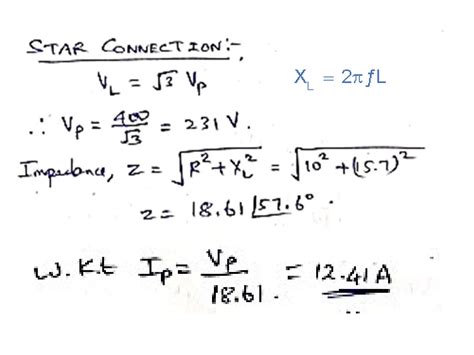 STAR CONNECTION:-
V_L = √3 V_P
X_L = 2πfL
∴ V_P = 400/√3 = 231 V.
Impedance, Z = √(R² + X_L²) = √(10² + (15.7)²)
Z = 18.61 ∠57.6° .
W.K.t I_P = V_P/18.61 . = 12.41A